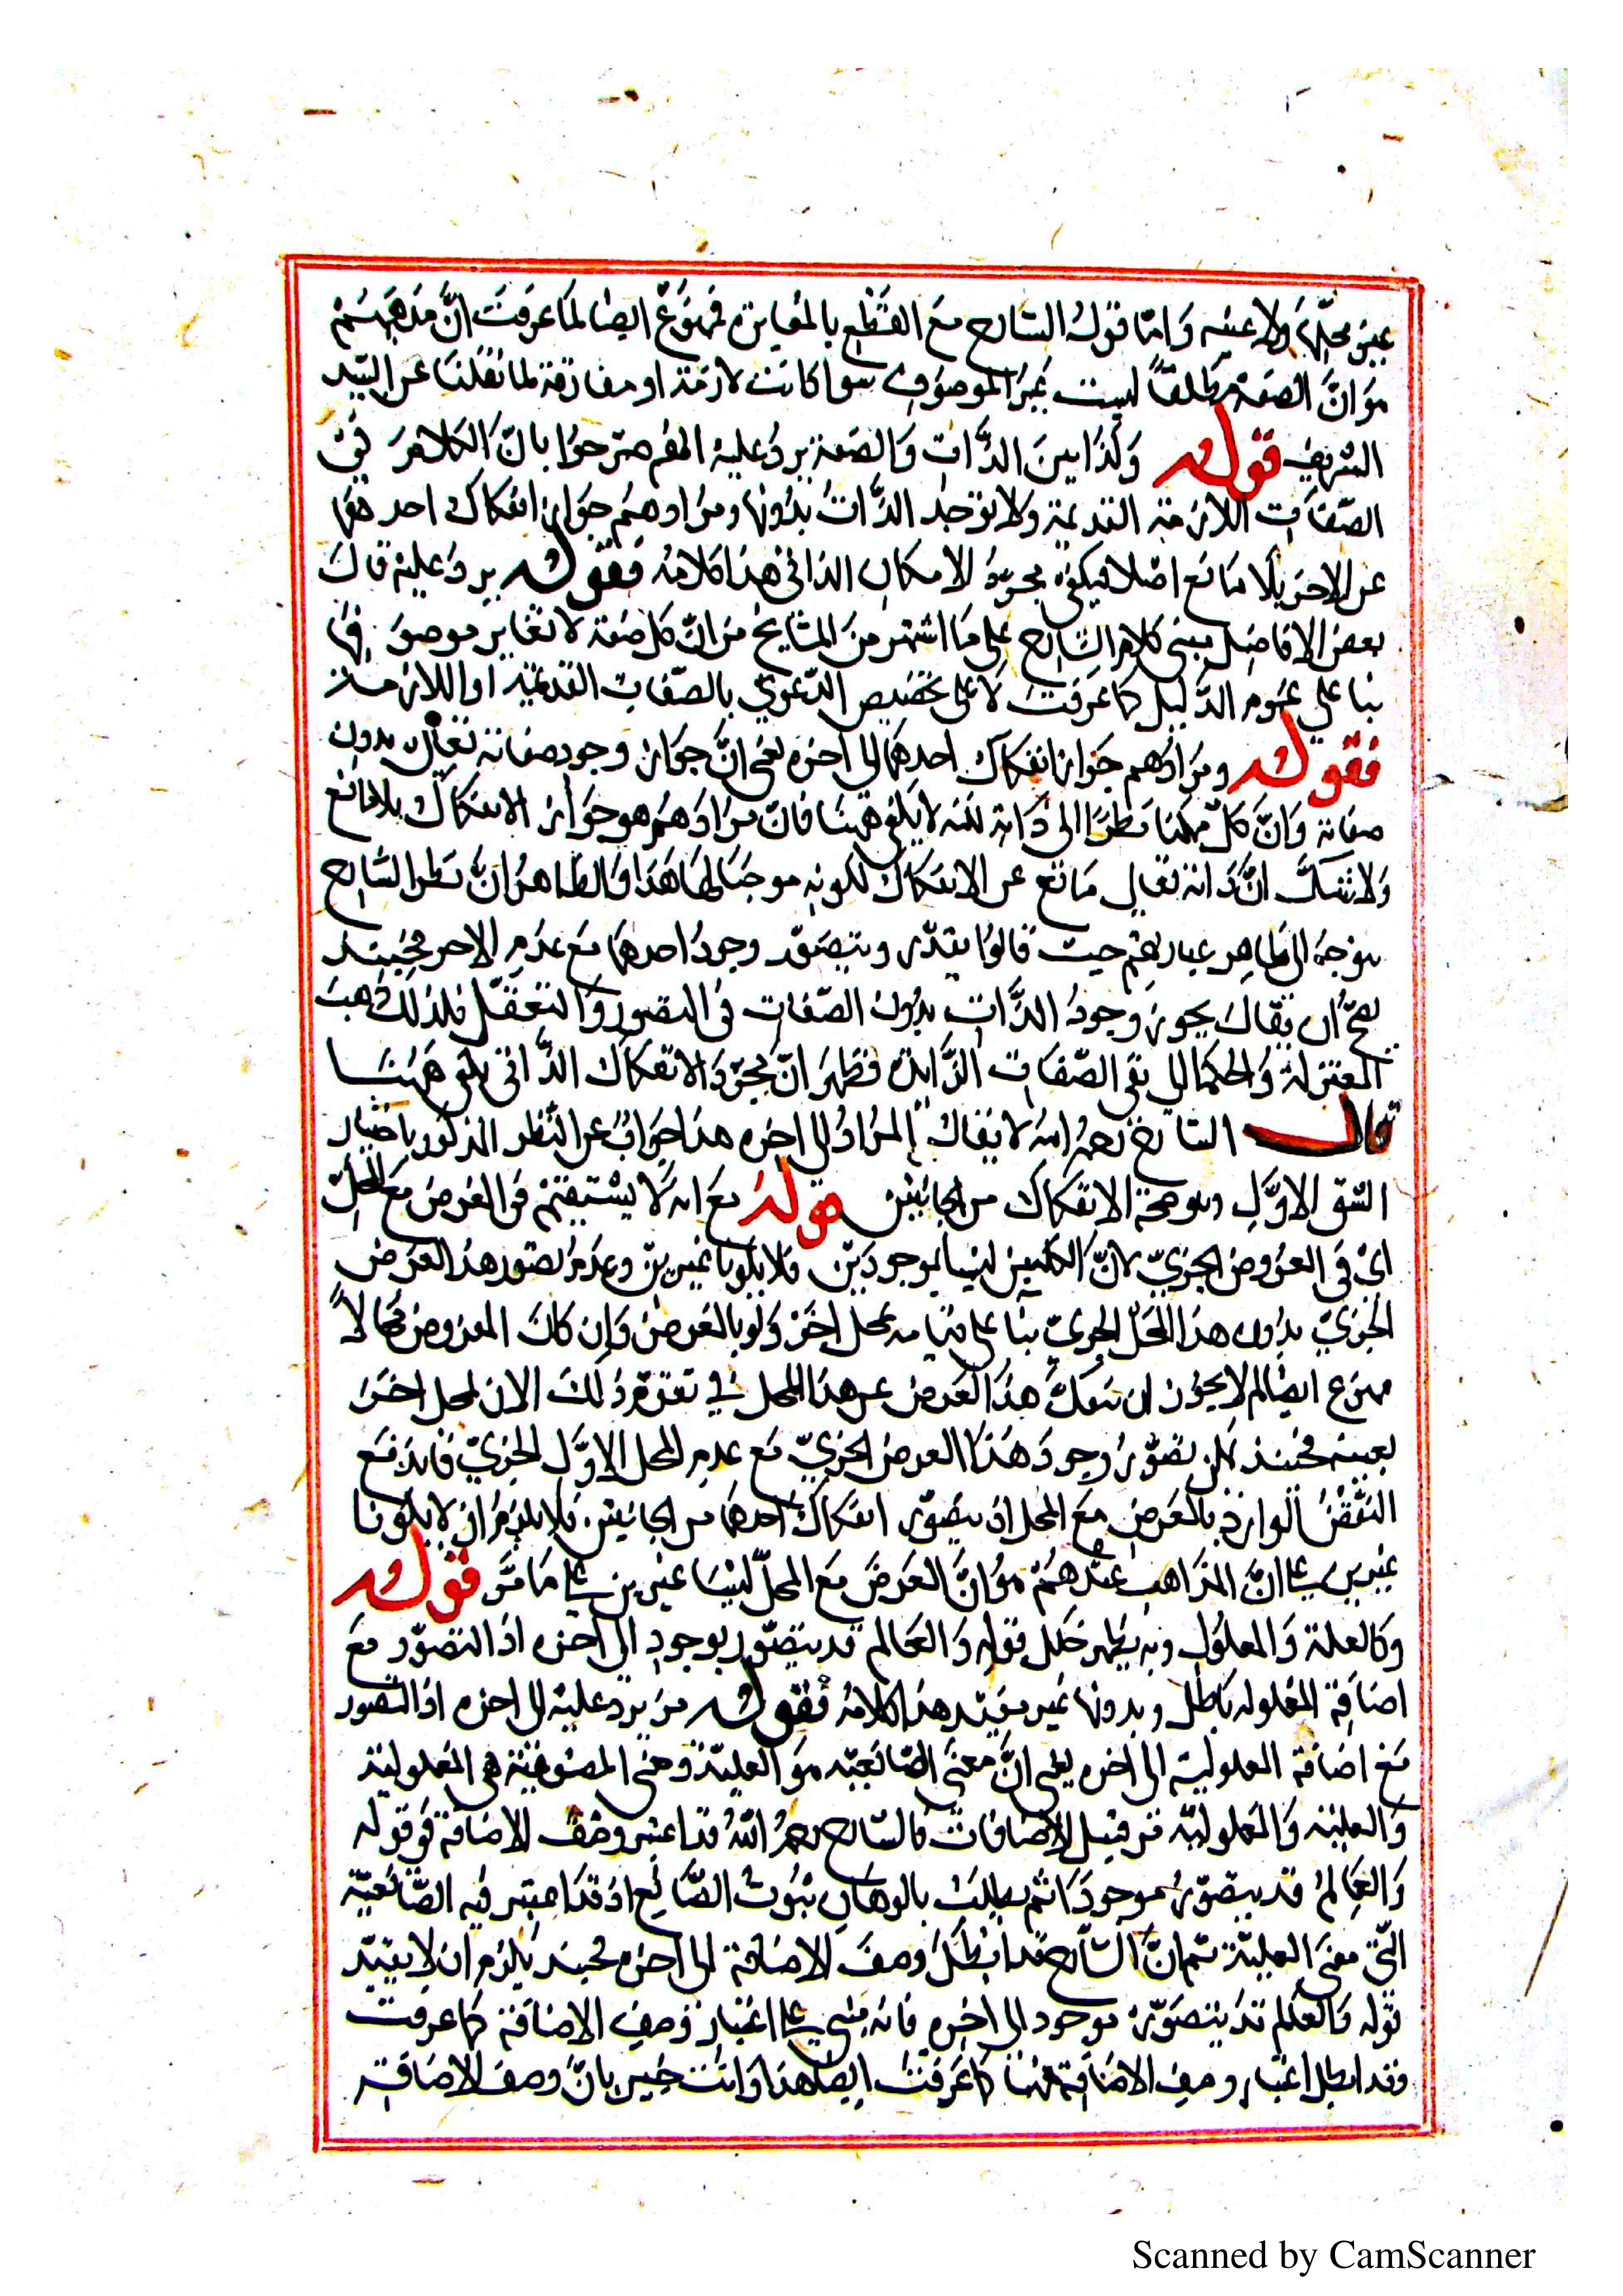 غير محلها ولا عينه وَامّا قولُ الشارح مع القطع بالمغايرة فممنوع ايضا لما عرفت انَّ مذهبهم
هو انَّ الصفة مطلقاً ليست غير الموصوف سوا كانت لازمة او مفارقة لما نقلنا عن السيد
الشريف قوله وَكذا بين الذّات وَالصفة يردُ عليه انهم صرحوا بانّ الكلام في
الصّفات اللازمة القديمة ولا توجد الذّاتُ بدونها ومرادهم جواز انفكاك احدهما
عن الاخر بلا مانع اصلا فيكون مجرد الامكان الذاتي هذا كلامه فقوله يردُ عليه قال
بعض الافاضل مبنى كلام الشارح على ما اشتهر من المشايخ من انّ كل صفة لا تغاير موصوفها
بنا على عموم الدّليل كما عرفت لا على تخصيص الدّعوي بالصّفات القديمة او اللازمة
فقوله ومرادهم جواز انفكاك احدهما الى اخره يعنى انّ جواز وجود صفاته تعالى بدون
صفاته وَانَّ كل ممكنا نظرا الى ذاته لكنه لا يكفى ههنا فان مرادهم هو جواز الانفكاك بلا مانع
وَلا شك انَّ ذاته تعالى مانع عن الانفكاك لكونه موجبا لها هذا وَالظاهر انّ نظر الشارح
متوجه الى ظاهر عبارتهم حيث قالوا يقدّر ويتصوّر وجودُ احدهما مع عدم الاخر فحينئذ
يصحّ ان يقال يجوز وجودُ الذّات بدون الصّفات في التصور وَالتعقّل فلذلك ذهب
المعتزلة وَالحكما الى نفى الصّفات الزّايدة فظهر انّ مجرّد الانفكاك الذّاتى يكفى ههنا
قال الشارح رحمه الله لا يقال المراد الى اخره هذا جواب عن النظر المذكور باختيار
الشق الاوّل وهو صحة الانفكاك من الجانبين قوله مع انه لا يستقيم في العرض مع المحلّ
ايْ في العرض الجزيّ لانّ الكليين ليسا بموجودين فلا يكونا غيرين وعدم تصور هذا العرض
الجزيّ بدون هذا المحل الجزيّ بنا على قيامه بمحل اخر وَلو بالفرض وَان كان المفروض محالاً
ممنوع ايضا لم لا يجوز ان ينفك هذا العرض عن هذا المحل في ذلك الان لمحل اخر
بعينه فحينئذ يمكن تصوّر وجود هذا العرض الجزيّ مع عدم المحل الاوّل الجزيّ فاندفع
النقض الوارد بالعرض مع المحل اذ يتصوّر انفكاك احدهما من الجانبين فلا يلزم ان لا يكونا
غيرين على انَّ المذاهب عندهم هو انَّ العرض مع المحلّ ليسا غيرين على ما مرّ قوله
وكالعلة وَالمعلول وبه يظهر خلل قوله وَالعالم قد يتصّور بوجود الى اخره اذ التصوّر مع
اضافة المعلوله باطل وبدونها غير مفيد هذا كلامه فقوله من يرد عليه الى اخره اذ التصور
مع اضافة المعلولية الى اخره يعنى انَّ معنى الصّانعيّة هو العليّة ومعنى المصنوعيّة هى المعلولية
وَالعلية وَالمعلوليّة من قبيل الاضافات فالشارح رحمه اللهُ قد اعتبر وصف الاضافة في قوله
وَالعالم قد يتصوّر موجودا ثم يطلب بالبرهان ثبوت الصّانع اذ قد اعتبر فيه الصّانعيّة
التي معنى العليّة ثم انَّ الشارح قد ابطل وصف الاضافة الى اخره فحينئذ يلزم ان لا يفيد
قوله وَالعالم قد يتصوّر موجود الى اخره فانه مبنى على اعتبار وصف الاضافة كما عرفت
وقد ابطل اعتبار وصف الاضافة ههنا كما عرفت ايضا هذا وَانت خبير بانّ وصف الاضافة
Scanned by CamScanner